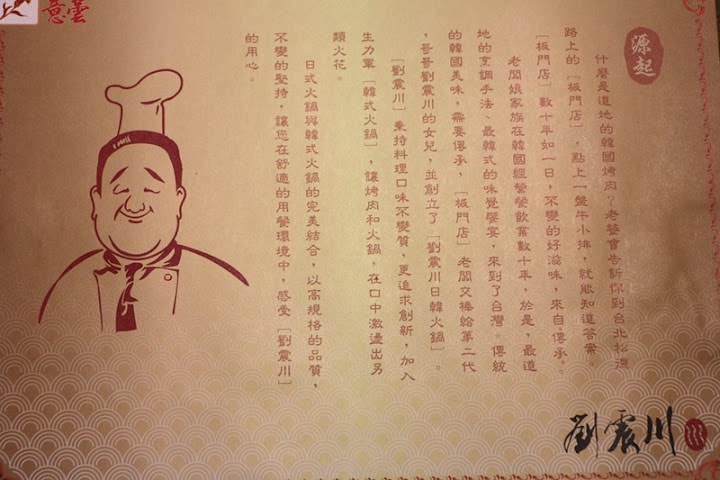 源起
什麼是道地的韓國烤肉?老饕會告訴你到台北松
路上的〔板門店〕,點上一盤牛小排,就能知道答案。
〔板門店〕數十年如一日,不變的好滋味,來自傳承。
老闆娘家族在韓國經營餐飲業數十年,於是,最道
地的烹調手法、最韓式的味覺饗宴,來到了台灣。傳統
的韓國美味,需要傳承,〔板門店〕老闆交棒給第二代
,哥哥劉震川的女兒,並創立了〔劉震川日韓火鍋〕。
〔劉震川〕秉持料理口味不變質,更追求創新,加入
生力軍〔韓式火鍋〕,讓烤肉和火鍋,在口中激盪出另
類火花。
日式火鍋與韓式火鍋的完美結合,以高規格的品質,
不變的堅持,讓您在舒適的用餐環境中,感受〔劉震川〕
的用心。
劉震川